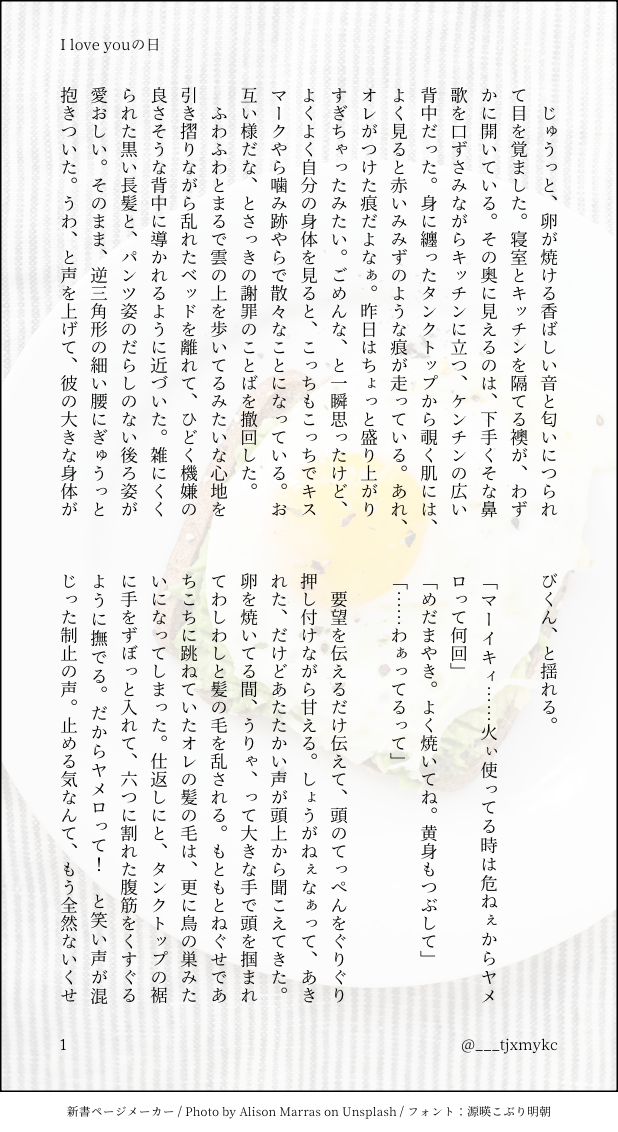 I love youの日
　じゅうっと、卵が焼ける香ばしい音と匂いにつられ
て目を覚ました。寝室とキッチンを隔てる襖が、わず
かに開いている。その奥に見えるのは、下手くそな鼻
歌を口ずさみながらキッチンに立つ、ケンチンの広い
背中だった。身に纏ったタンクトップから覗く肌には、
よく見ると赤いみみずのような痕が走っている。あれ、
オレがつけた痕だよなぁ。昨日はちょっと盛り上がり
すぎちゃったみたい。ごめんな、と一瞬思ったけど、
よくよく自分の身体を見ると、こっちもこっちでキス
マークやら噛み跡やらで散々なことになっている。お
互い様だな、とさっきの謝罪のことばを撤回した。
　ふわふわとまるで雲の上を歩いてるみたいな心地を
引き摺りながら乱れたベッドを離れて、ひどく機嫌の
良さそうな背中に導かれるように近づいた。雑にくく
られた黒い長髪と、パンツ姿のだらしのない後ろ姿が
愛おしい。そのまま、逆三角形の細い腰にぎゅうっと
抱きついた。うわ、と声を上げて、彼の大きな身体が
びくん、と揺れる。
「マーイキィ……火ぃ使ってる時は危ねぇからヤメ
ロって何回」
「めだまやき。よく焼いてね。黄身もつぶして」
「……わぁってるって」
　要望を伝えるだけ伝えて、頭のてっぺんをぐりぐり
押し付けながら甘える。しょうがねぇなぁって、あき
れた、だけどあたたかい声が頭上から聞こえてきた。
卵を焼いてる間、うりゃ、って大きな手で頭を掴まれ
てわしわしと髪の毛を乱される。もともとねぐせであ
ちこちに跳ねていたオレの髪の毛は、更に鳥の巣みた
いになってしまった。仕返しにと、タンクトップの裾
に手をずぼっと入れて、六つに割れた腹筋をくすぐる
ように撫でる。だからヤメロって！　と笑い声が混
じった制止の声。止める気なんて、もう全然ないくせ
1
@___tjxmykc
新書ページメーカー / Photo by Alison Marras on Unsplash / フォント：源暎こぶり明朝